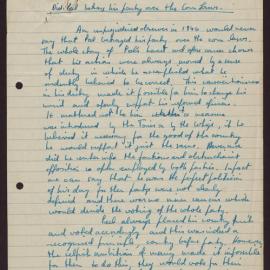 Did Peel betray his party over the Corn Laws.
An unprejudiced observer in 1846 would never
say that Peel betrayed his party over the corn laws.
The whole story of Peel's heart and after career shows
that his actions were always moved by a sense
of duty in which he accomplished what he
ardently believed to be correct. This conscientiousness
in his duty made it possible for him to change his
mind and openly support his informed views.
It mattered not to him whether a measure
was introduced by the Tories or by the Whigs, if he
believed it necessary for the good of the country
he would support it just the same. Never
did he enter into the factious and
opposition so often employed by both parties. In fact
we can say that he was the perfect politician
of his day for then party were not clearly
defined and there was no inner caucus which
would decide the voting of the whole party.
Peel always placed his country first
and voted accordingly and this was indeed a
recognised principle, country before party. However
the selfish ambitions of many made it impossible
for them to do this, they would vote for their